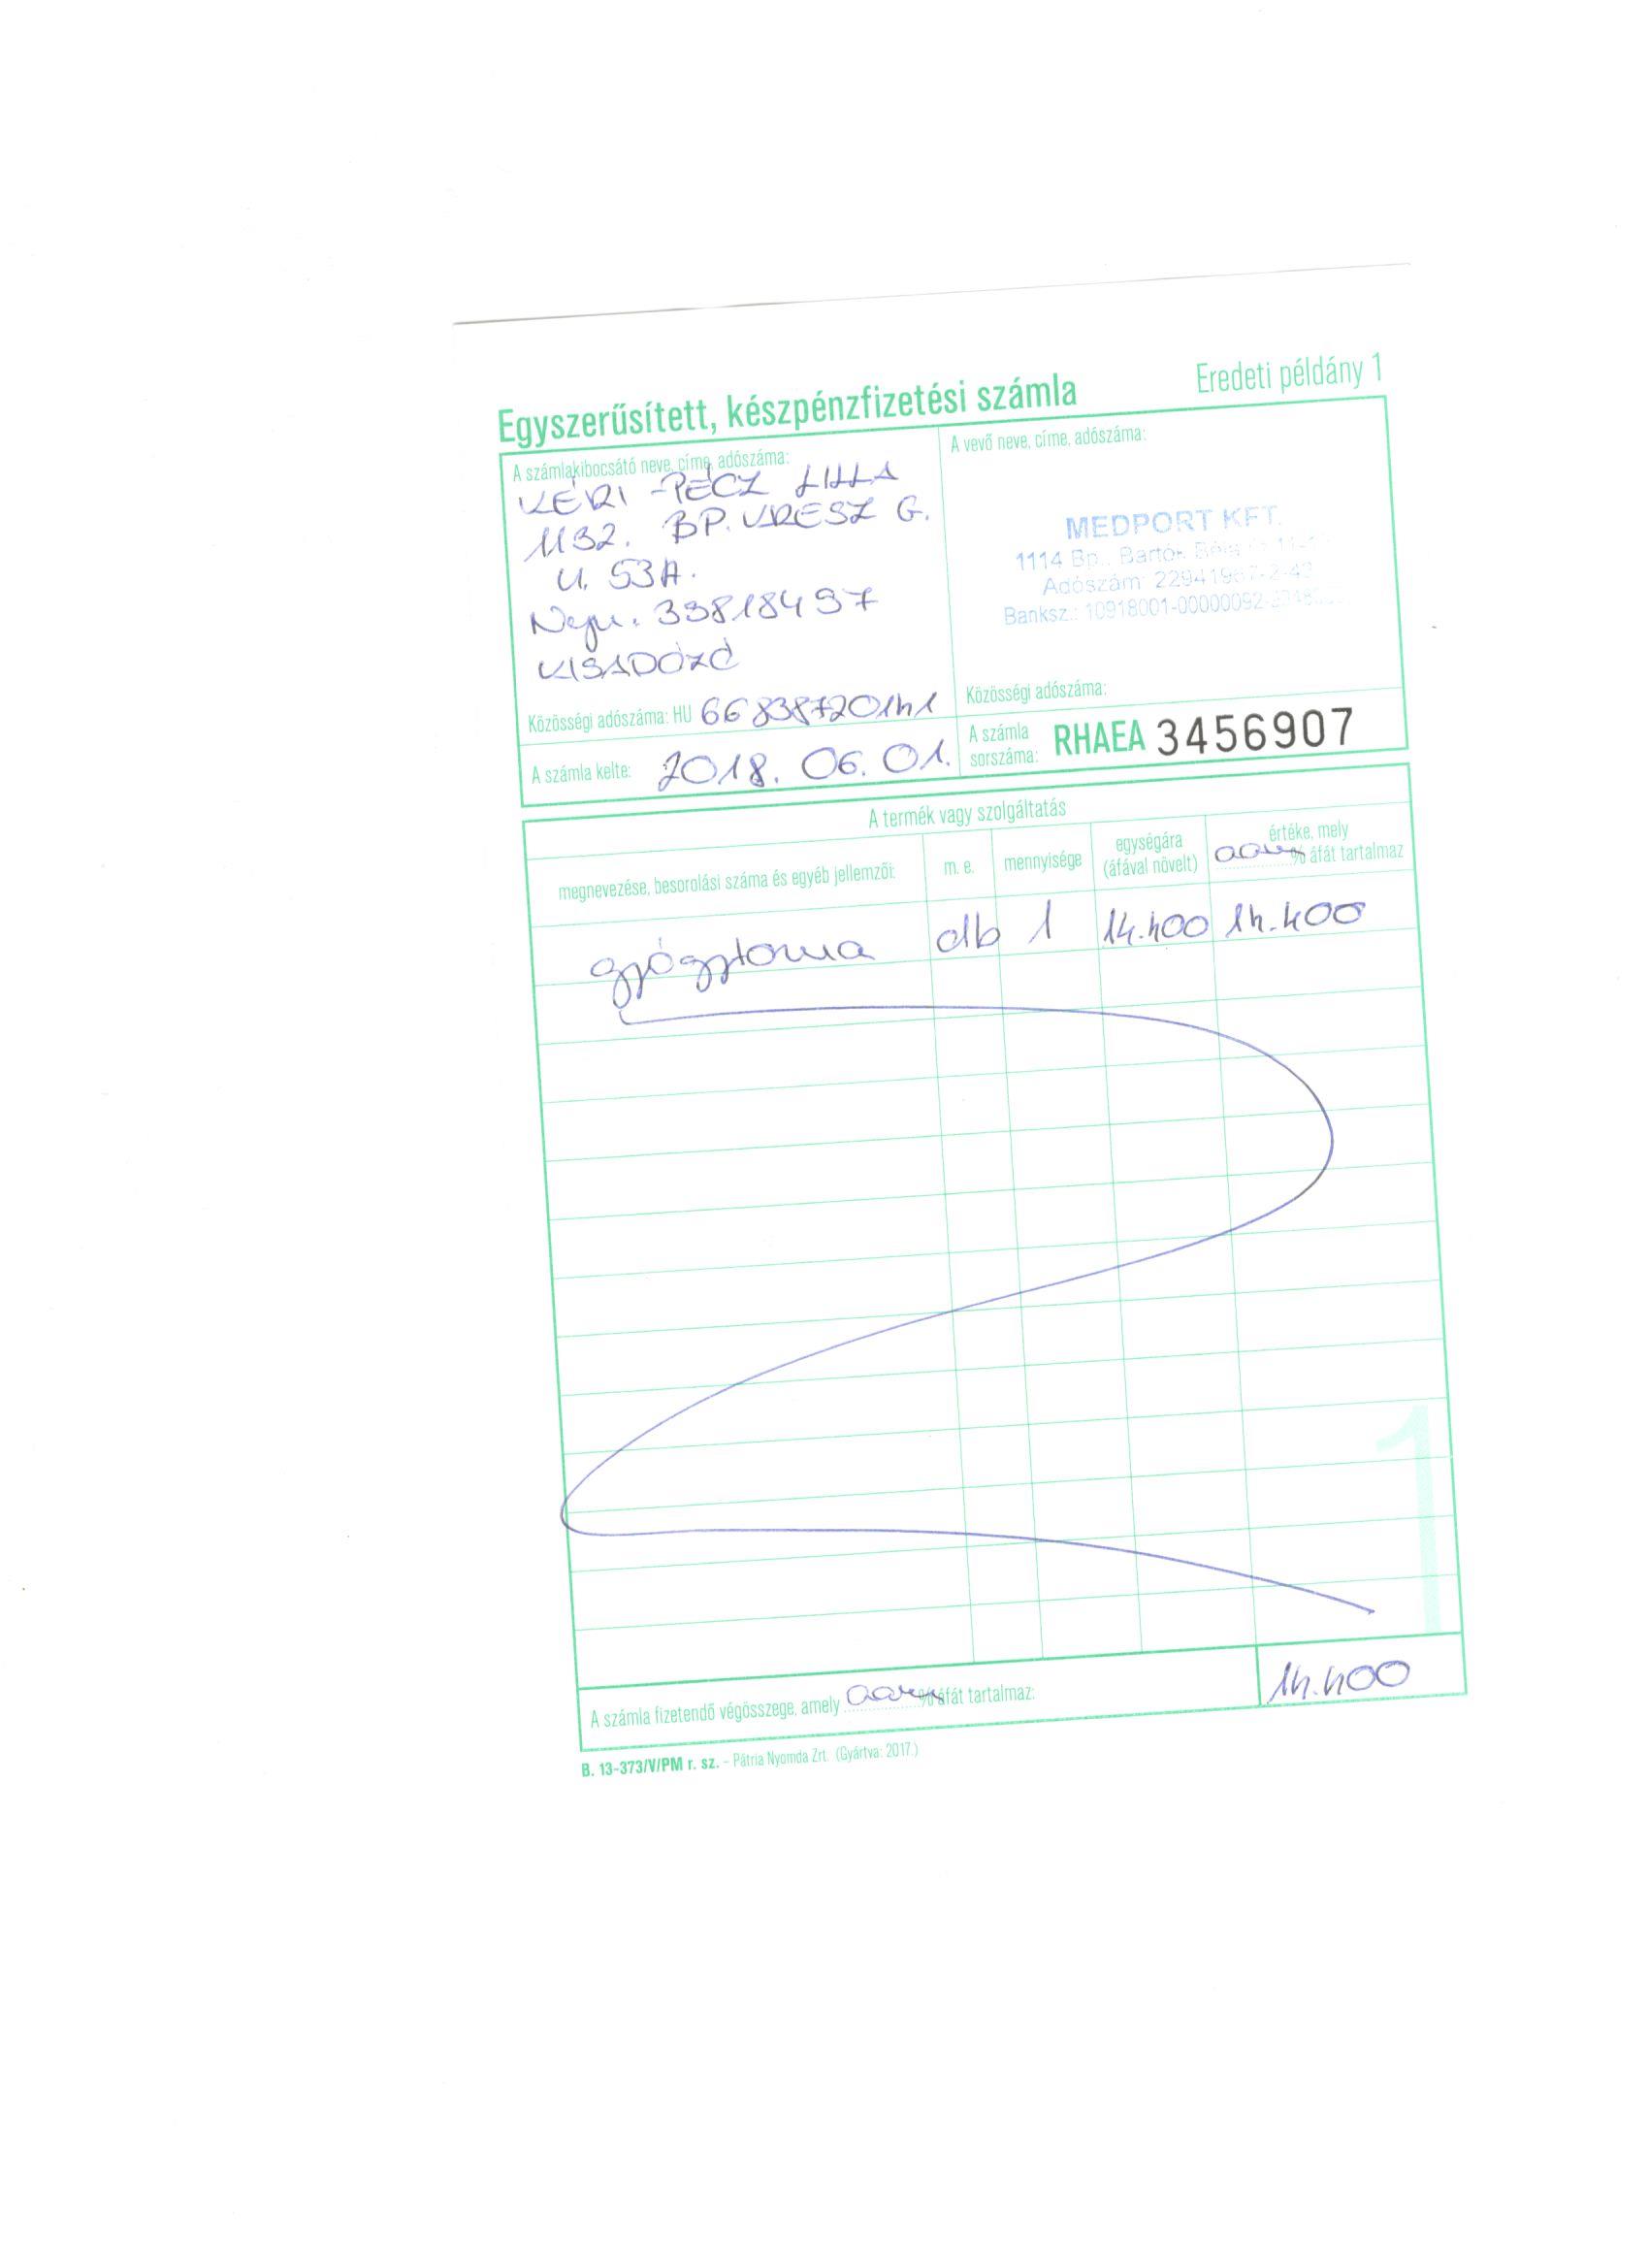 Egyszerűsített, készpénzfizetési számla
Eredeti példány 1
A számlakibocsátó neve, címe, adószáma:
KÉRI-PÉCZ LILLA
1132. BP. KRESZ G.
U. 53A.
Nyu. 33818497
KISADÓZÓ
Közösségi adószáma: HU 66838720141
A számla kelte: 2018. 06. 01.
A vevő neve, címe, adószáma:
MEDPORT KFT.
1114 Bp., Bartók Béla
Adószám:
Banksz.: 10918001-00000092-
Közösségi adószáma:
A számla
sorszáma: RHAEA 3456907
A termék vagy szolgáltatás
megnevezése, besorolási száma és egyéb jellemzői:
m. e.
mennyisége
egységára
(áfával növelt)
értéke, mely
% áfát tartalmaz
gyógytorna db 1 14.400 14.400
1
A számla fizetendő végösszege, amely % áfát tartalmaz: 14.400
B. 13-373/V/PM r. sz. – Pátria Nyomda Zrt. (Gyártva: 2017.)